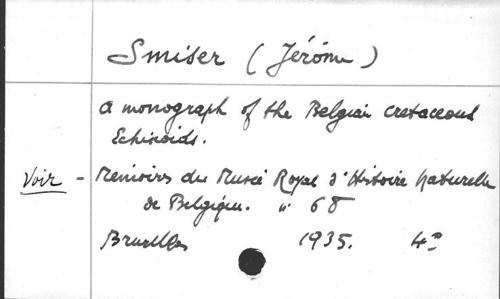 Smiser (Jérôme)
A monograph of the Belgian cretaceous
Echinoids.
Voir - Mémoires du Musée Royal d'Histoire Naturelle
de Belgique. n° 68
Bruxelles 1935. 4°